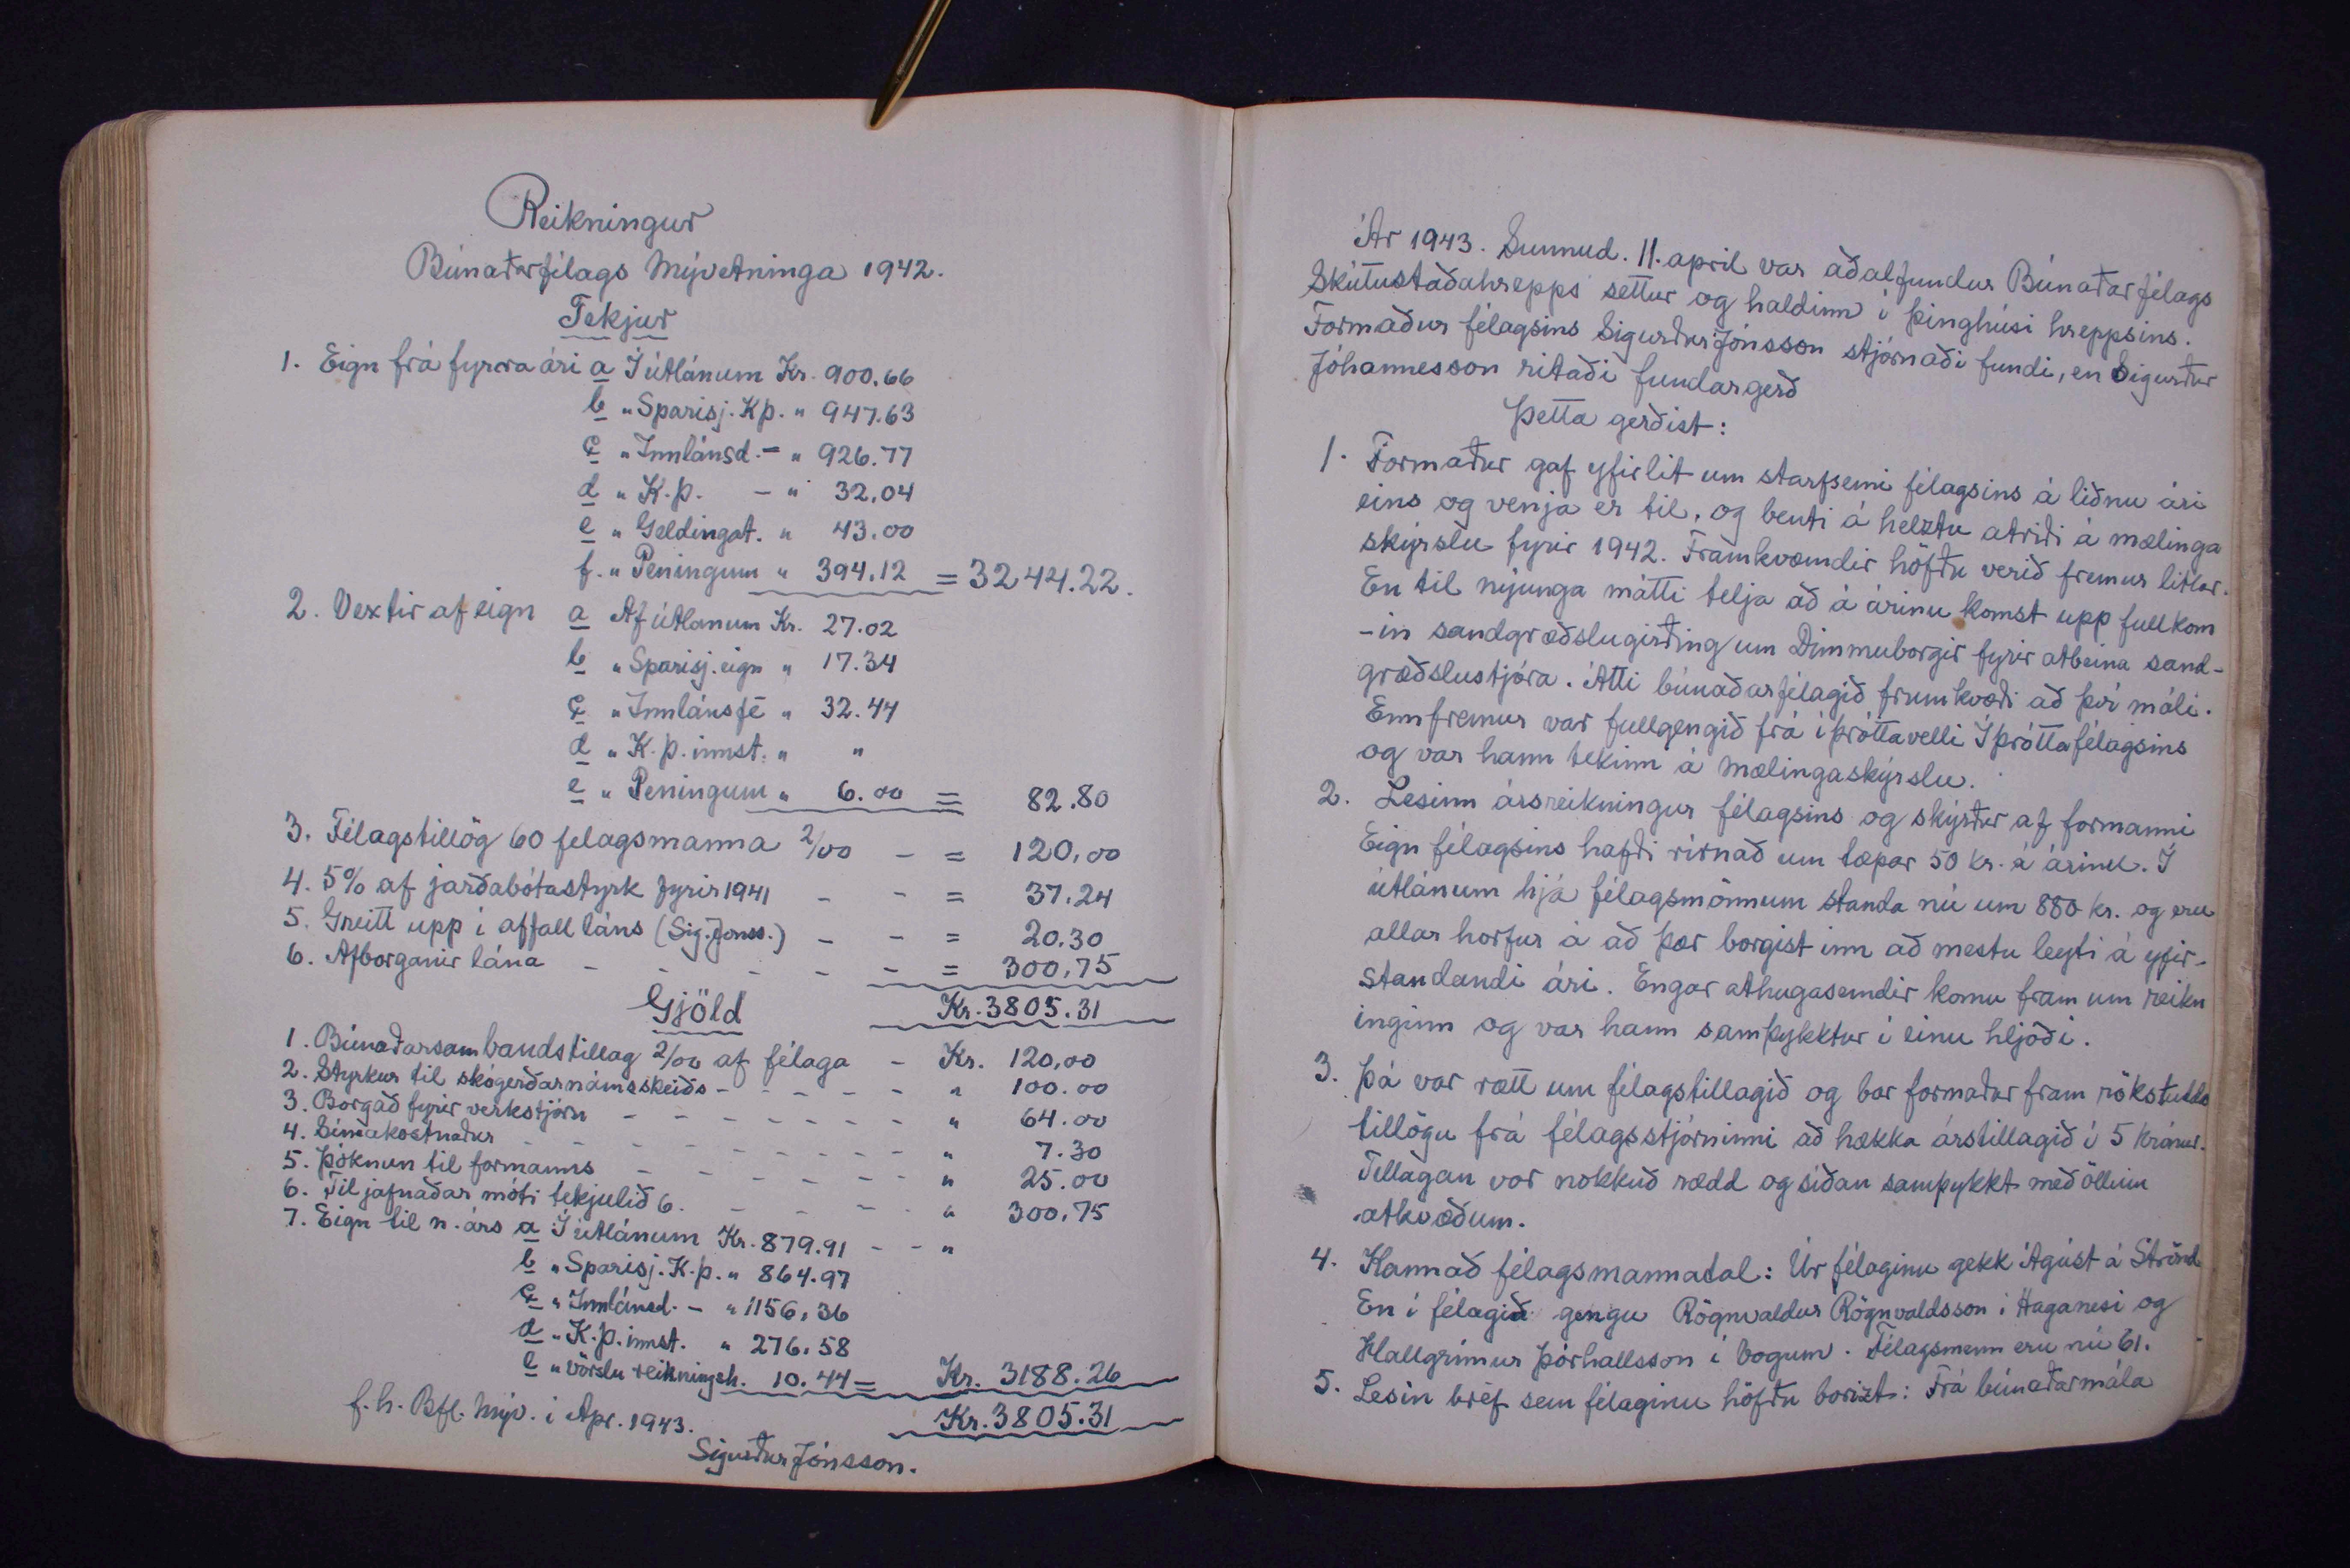 Reikningur
Búnaðarfélags Mývetninga 1942.
Tekjur
1. Eign frá fyrra ári a Í útlánum Kr. 900.66
b " Sparisj. Kþ. " 947.63
c " Innlánsd. - " 926.77
d " K.þ. - " 32.04
e " Geldingat. " 43.00
f. " Peningum " 394.12 = 3244.22.
2. Vextir af eign a Af útlanum Kr. 27.02
b " Sparisj. eign " 17.34
c " Innlánsfé " 32.44
d " K.þ. innst. " "
e " Peningum " 6.00 = 82.80
3. Félagstillög 60 felagsmanna 2/00 - = 120,00
4. 5% af jarðabótastyrk fyrir 1941 - - = 37.24
5. Greitt upp í affall láns (Sig. Jónss.) - - = 20.30
6. Afborganir lána - - - - - = 300,75
Kr. 3805.31
Gjöld
1. Búnaðarsambandstillag 2/00 af félaga - Kr. 120,00
2. Styrkur til skógerðarnámsskeiðs - - - - - " 100.00
3. Borgað fyrir verkstjórn - - - - - - - " 64.00
4. Símakostnaður - - - - - - - - " 7.30
5. Þóknun til formanns - - - - - - " 25.00
6. Til jafnaðar móti tekjulið 6. - - - - " 300,75
7. Eign til n. árs a Í útlánum Kr. 879.91 - - "
b " Sparisj. K.þ. " 864.97
c " Innlánsd. - " 1156,36
d " K.þ. innst. " 276.58
e " vörslu reikningsh. 10.44 = Kr. 3188.26
Kr. 3805.31
f.h. Bfl. Mýv. í Apr. 1943.
Sigurður Jónsson.
Ár 1943. Sunnud. 11. apríl var aðalfundur Búnaðarfélags
Skútustaðahrepps settur og haldinn í þinghúsi hreppsins.
Formaður félagsins Sigurður Jónsson stjórnaði fundi, en Sigurður
Jóhannesson ritaði fundargerð
Þetta gerðist:
1. Formaður gaf yfirlit um starfsemi félagsins á liðnu ári
eins og venja er til, og benti á helztu atriði á mælinga
skýrslu fyrir 1942. Framkvæmdir höfðu verið fremur litlar.
En til nýjunga mátti telja að á árinu komst upp fullkom
-in sandgræðslugirðing um Dimmuborgir fyrir atbeina sand-
græðslustjóra. Átti búnaðarfélagið frumkvæði að því máli.
Ennfremur var fullgengið frá íþróttavelli Íþróttafélagsins
og var hann tekinn á mælingaskýrslu.
2. Lesinn ársreikningur félagsins og skýrður af formanni
Eign félagsins hafði rírnað um tæpar 50 kr. á árinu. Í
útlánum hjá félagsmönnum standa nú um 880 kr. og eru
allar horfur á að þær borgist inn að mestu leyti á yfir-
standandi ári. Engar athugasemdir komu fram um reikn
inginn og var hann samþykktur í einu hljóði.
3. Þá var rætt um félagstillagið og bar formaður fram rökstudda
tillögu frá félagsstjórninni að hækka árstillagið í 5 krónur.
Tillagan var nokkuð rædd og síðan samþykkt með öllum
atkvæðum.
4. Kannað félagsmannatal: Úr félaginu gekk Ágúst á Strönd
En í félagið gengu Rögnvaldur Rögnvaldsson í Haganesi og
Hallgrímur Þórhallsson í Vogum. Félagsmenn eru nú 61.
5. Lesin bréf sem félaginu höfðu borizt: Frá búnaðarmála